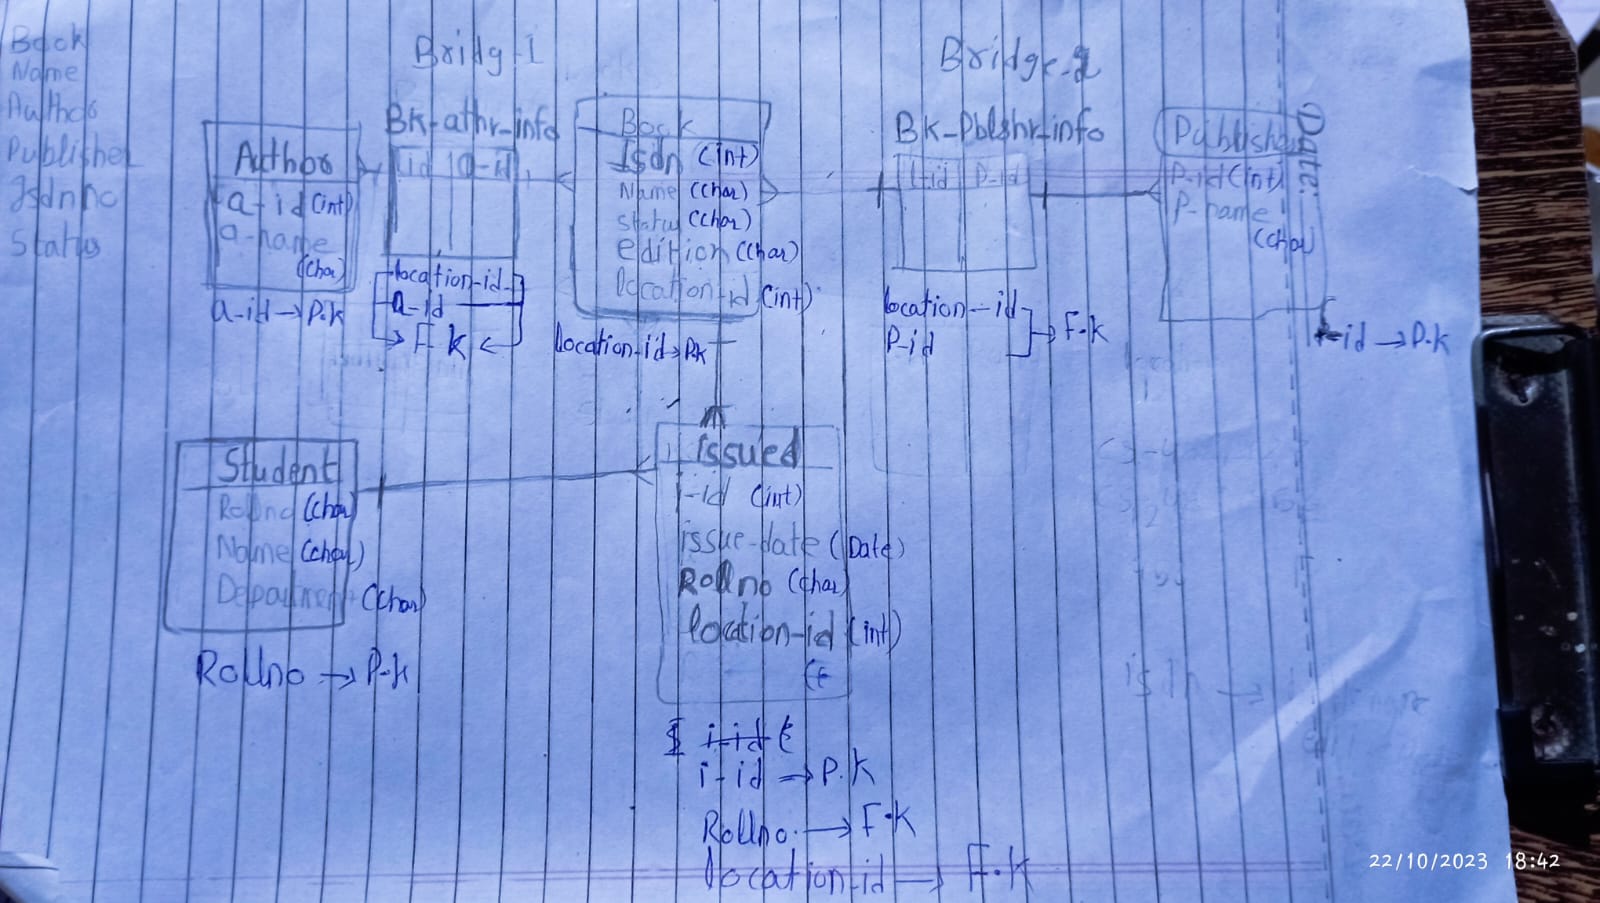 Book
Name
Autho
Publisher
Isdnno
Status
Bridg-1
Bridge-2
BK-athr-info
BK-Pblshr-info
Date:
Author
a-id (int)
a-name
(char)
a-id → P.k
lid a-id
location-id
a-id
F k
Book
Isdn (int)
Name (char)
status (char)
edition (char)
location-id (int)
location-id → Pk
l-id P-id
location-id
P-id
F.k
Publisher
P-id (int)
P-name
(char)
-id → P.k
Student
Rollno (char)
Name (char)
Department (char)
Rollno → P-k
issued
i-id (int)
issue-date (Date)
Rollno (char)
location-id (int)
(t
i-id
i-id → P.k
Rollno. → F.k
location-id → F.k
22/10/2023 18:42